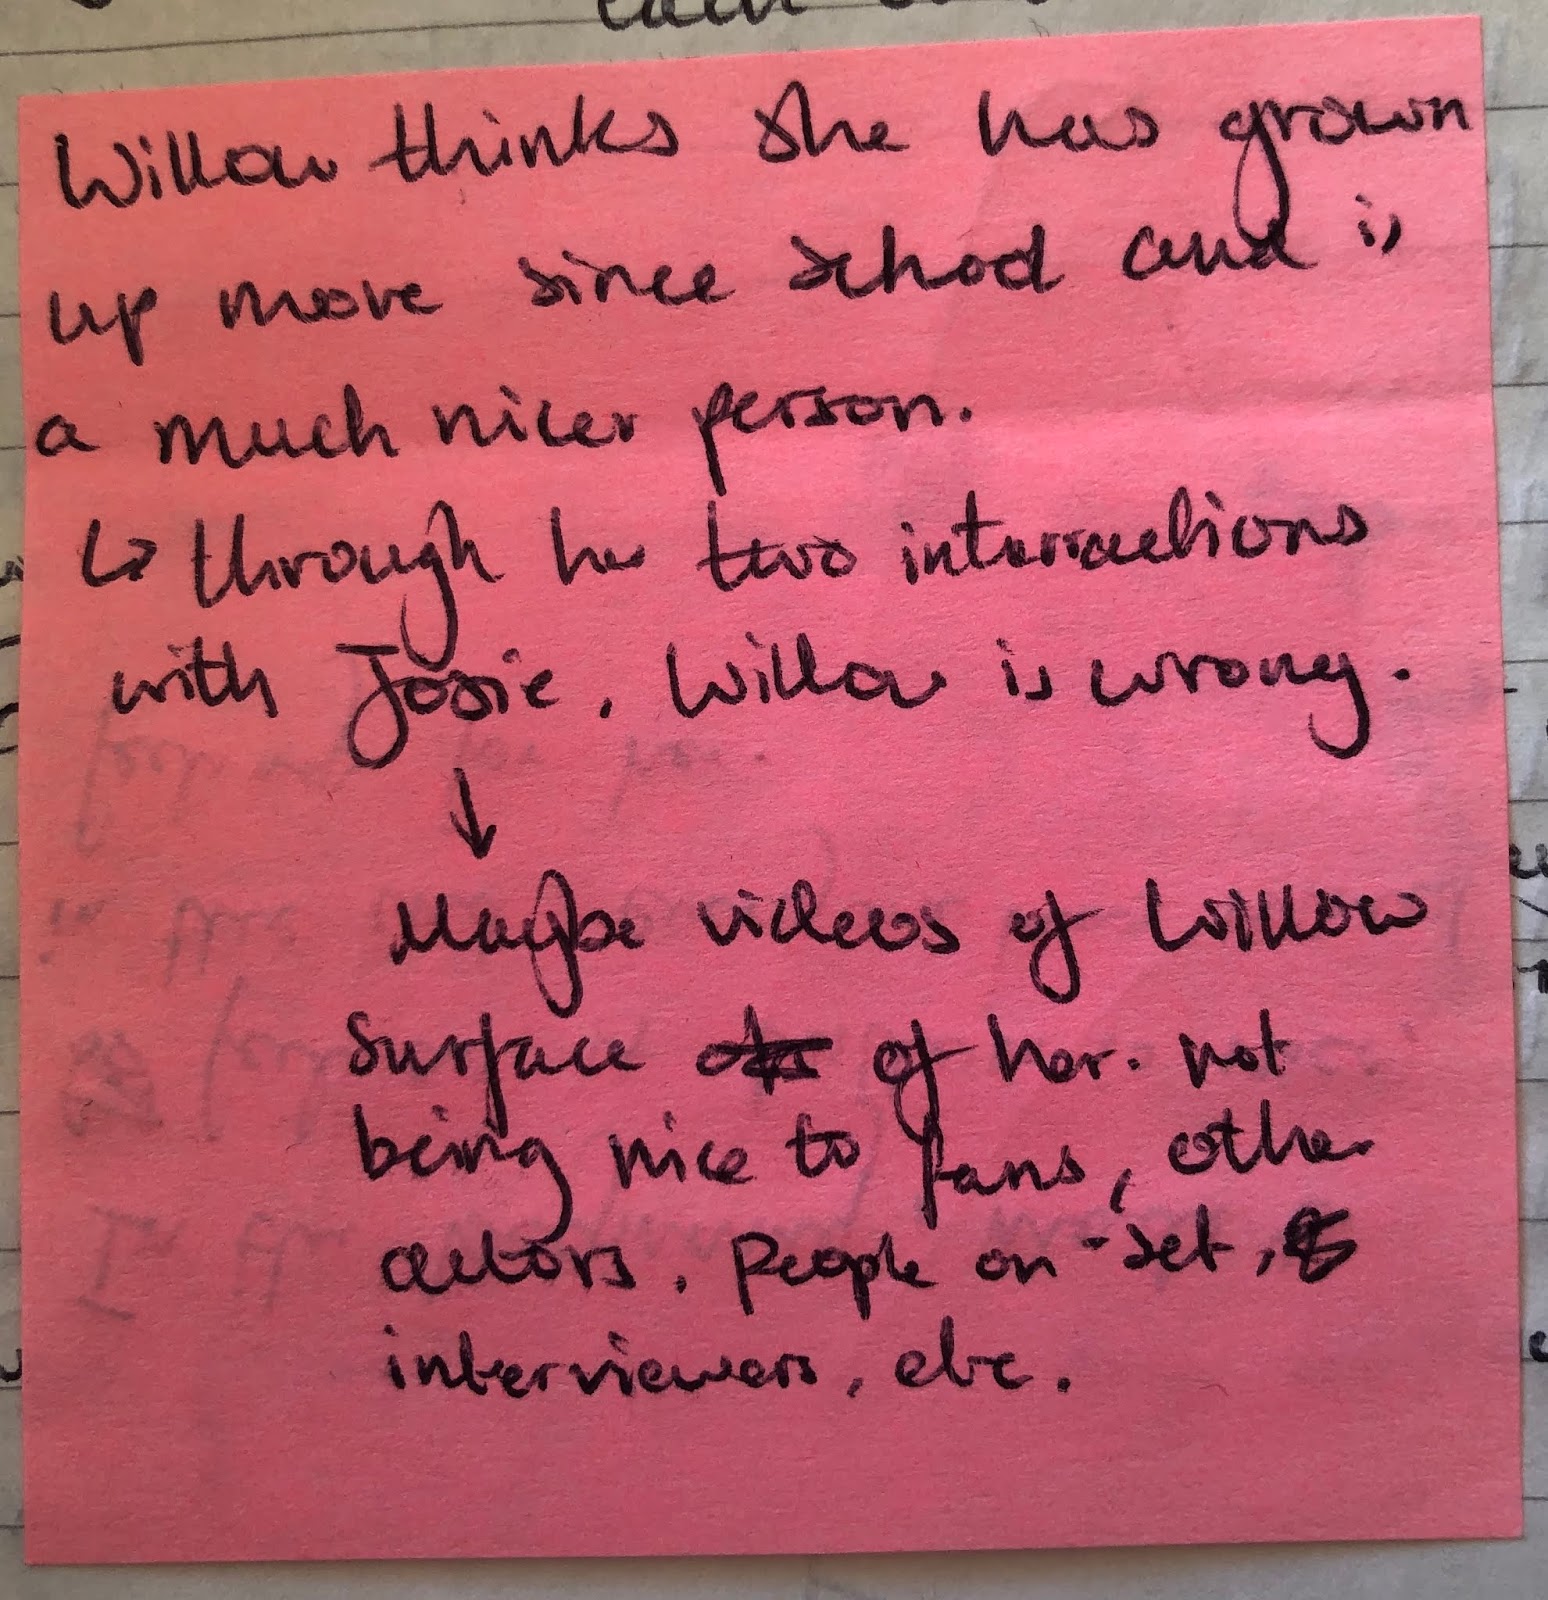 Willow thinks she has grown
up more since school and is
a much nicer person.
↳ through her two interractions
with Josie, Willow is wrong.
↓
Maybe videos of Willow
surface of her not
being nice to fans, other
actors, people on-set,
interviewers, etc.